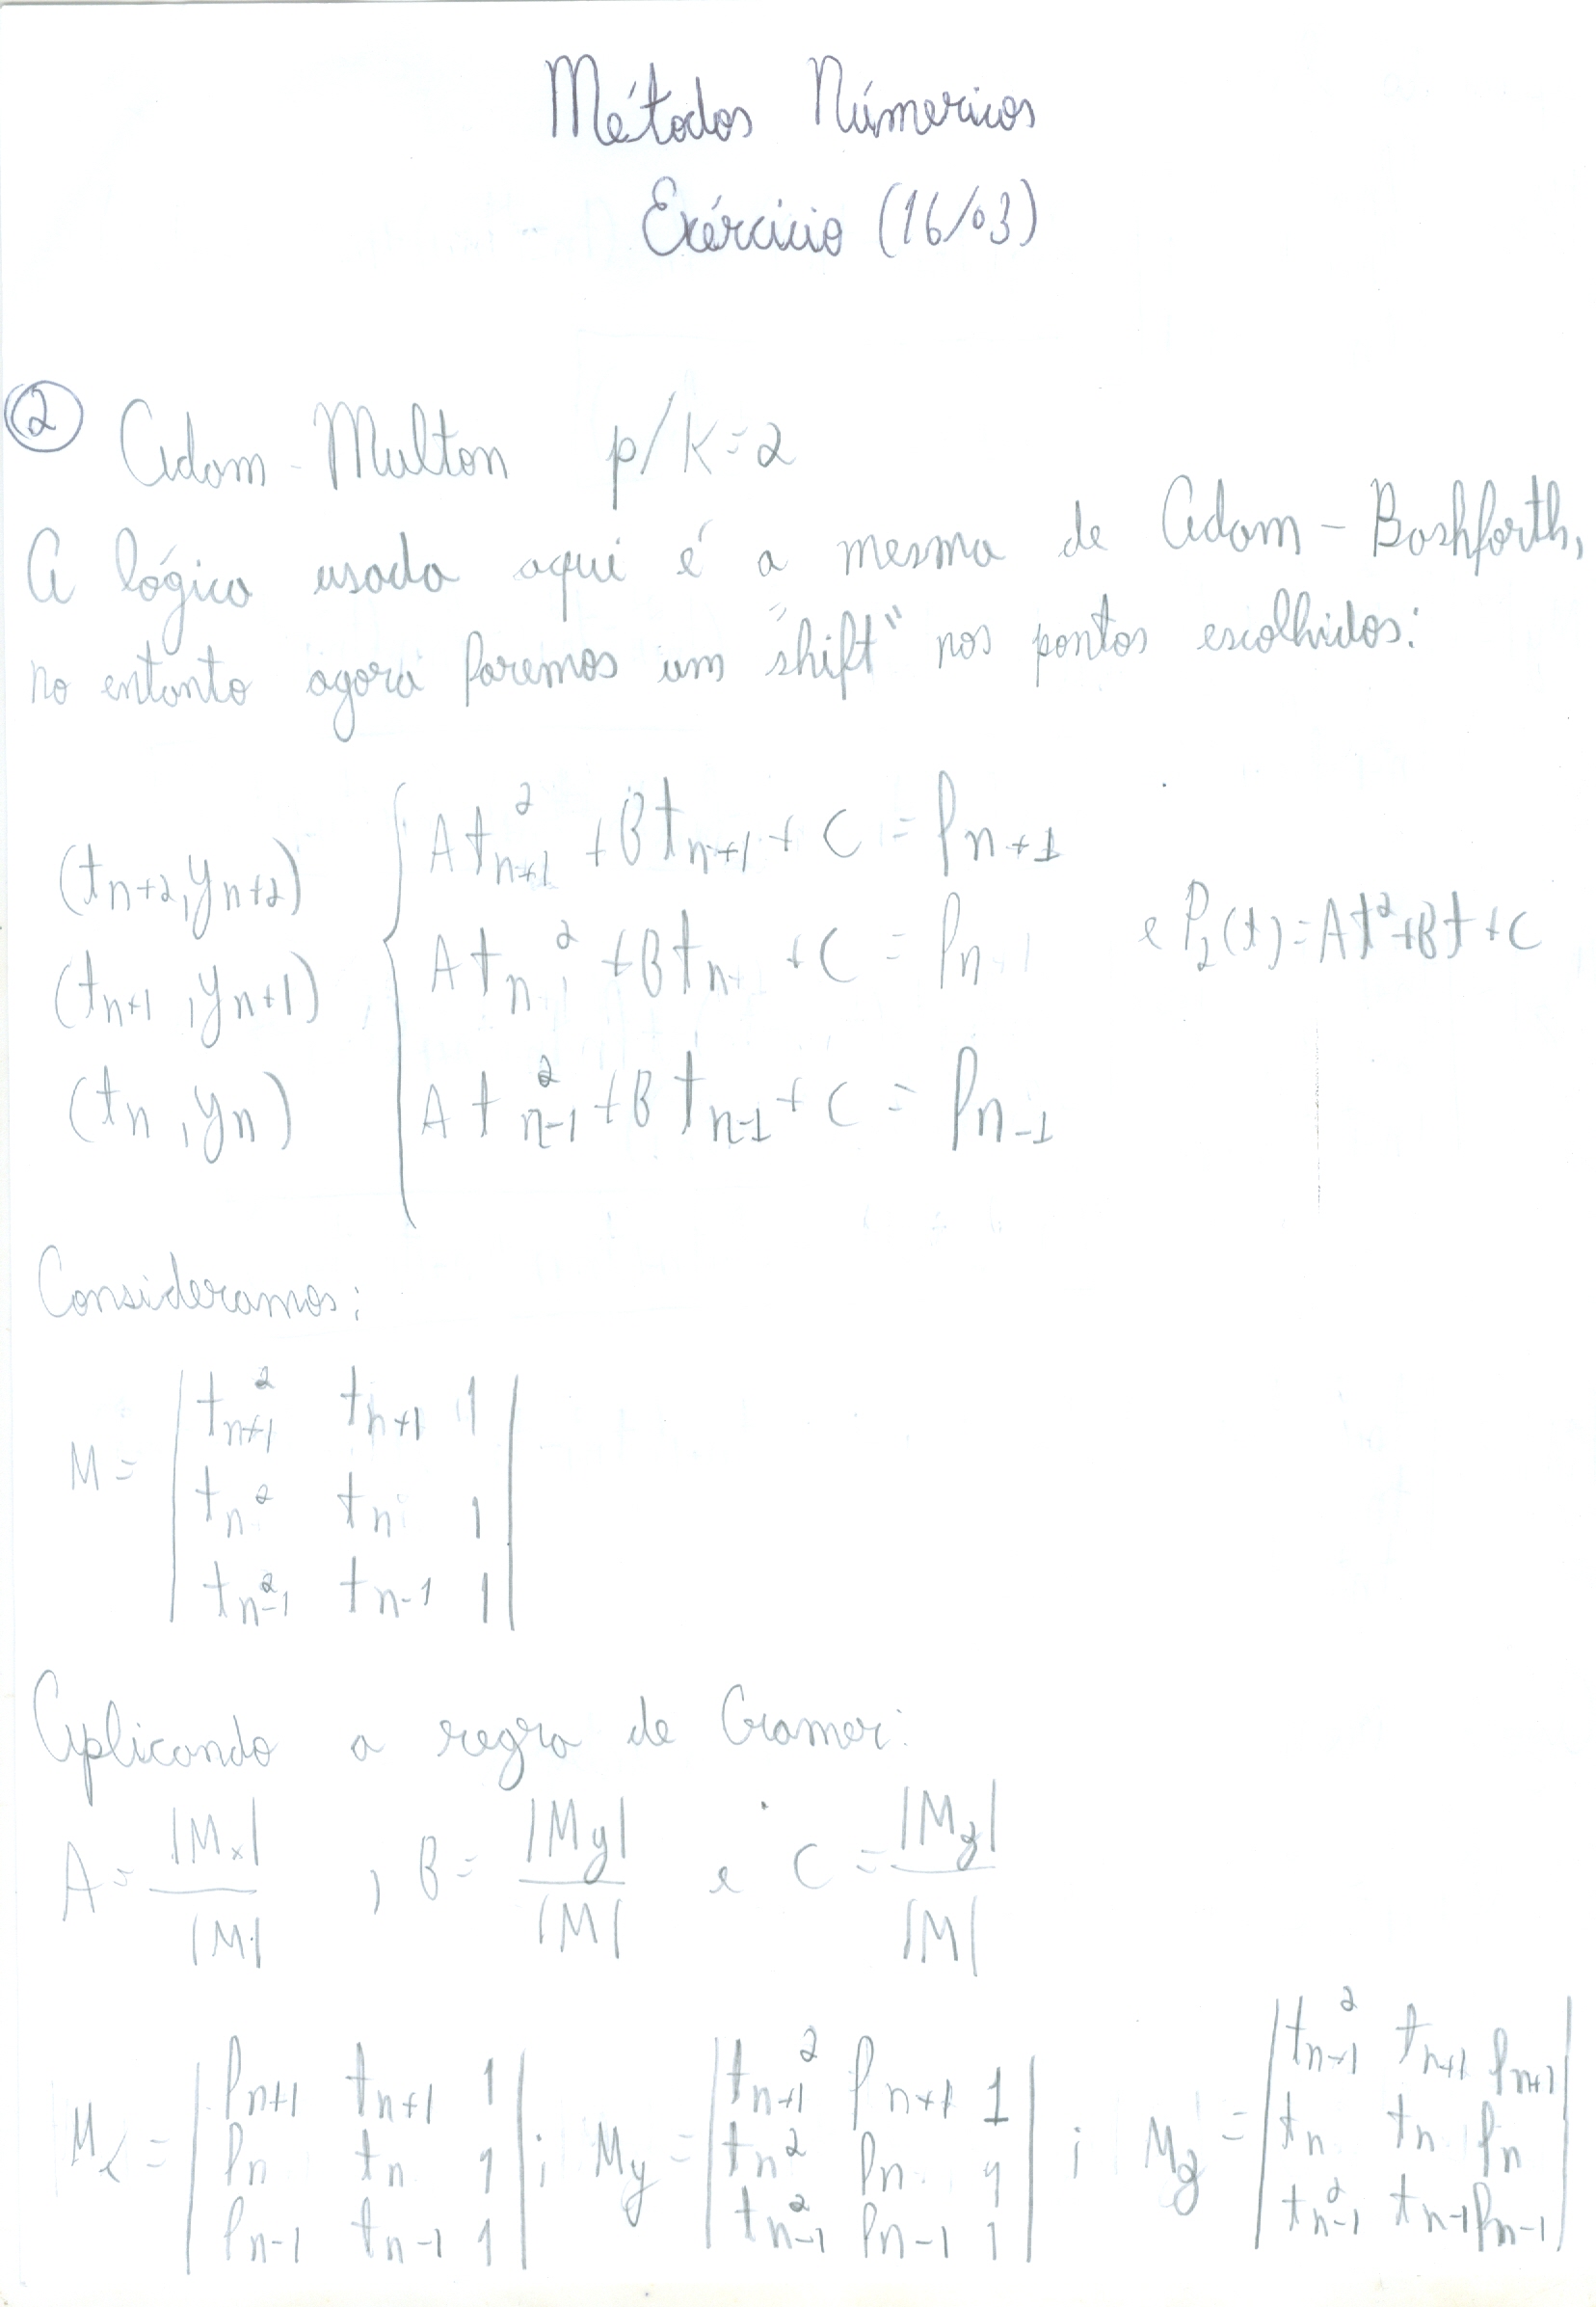 Métodos Númericos
Exércicio (16/03)
② Adam-Multon p/ K=2
A lógica usada aqui é a mesma de Adam-Bashforth,
no entanto agora faremos um "shift" nos pontos escolhidos:
(tn+2, yn+2) { A tn+1² + B tn+1 + C = fn+1
(tn+1, yn+1) A tn² + B tn + C = fn e P₂(t) = At² + Bt + C
(tn, yn) A tn-1² + B tn-1 + C = fn-1
Consideramos:
M = | tn+1² tn+1 1 |
| tn² tn 1 |
| tn-1² tn-1 1 |
Aplicando a regra de Cramer:
A = |Mx| / |M| , B = |My| / |M| e C = |Mz| / |M|
Mx = | fn+1 tn+1 1 | ; My = | tn+1² fn+1 1 | ; Mz = | tn+1² tn+1 fn+1 |
| fn tn 1 | | tn² fn 1 | | tn tn fn |
| fn-1 tn-1 1 | | tn-1² fn-1 1 | | tn-1² tn-1 fn-1 |